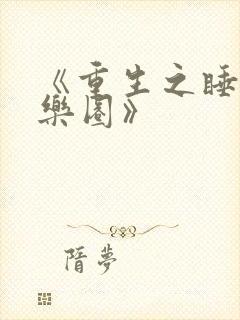 《重生之睡
樂園》
隋夢